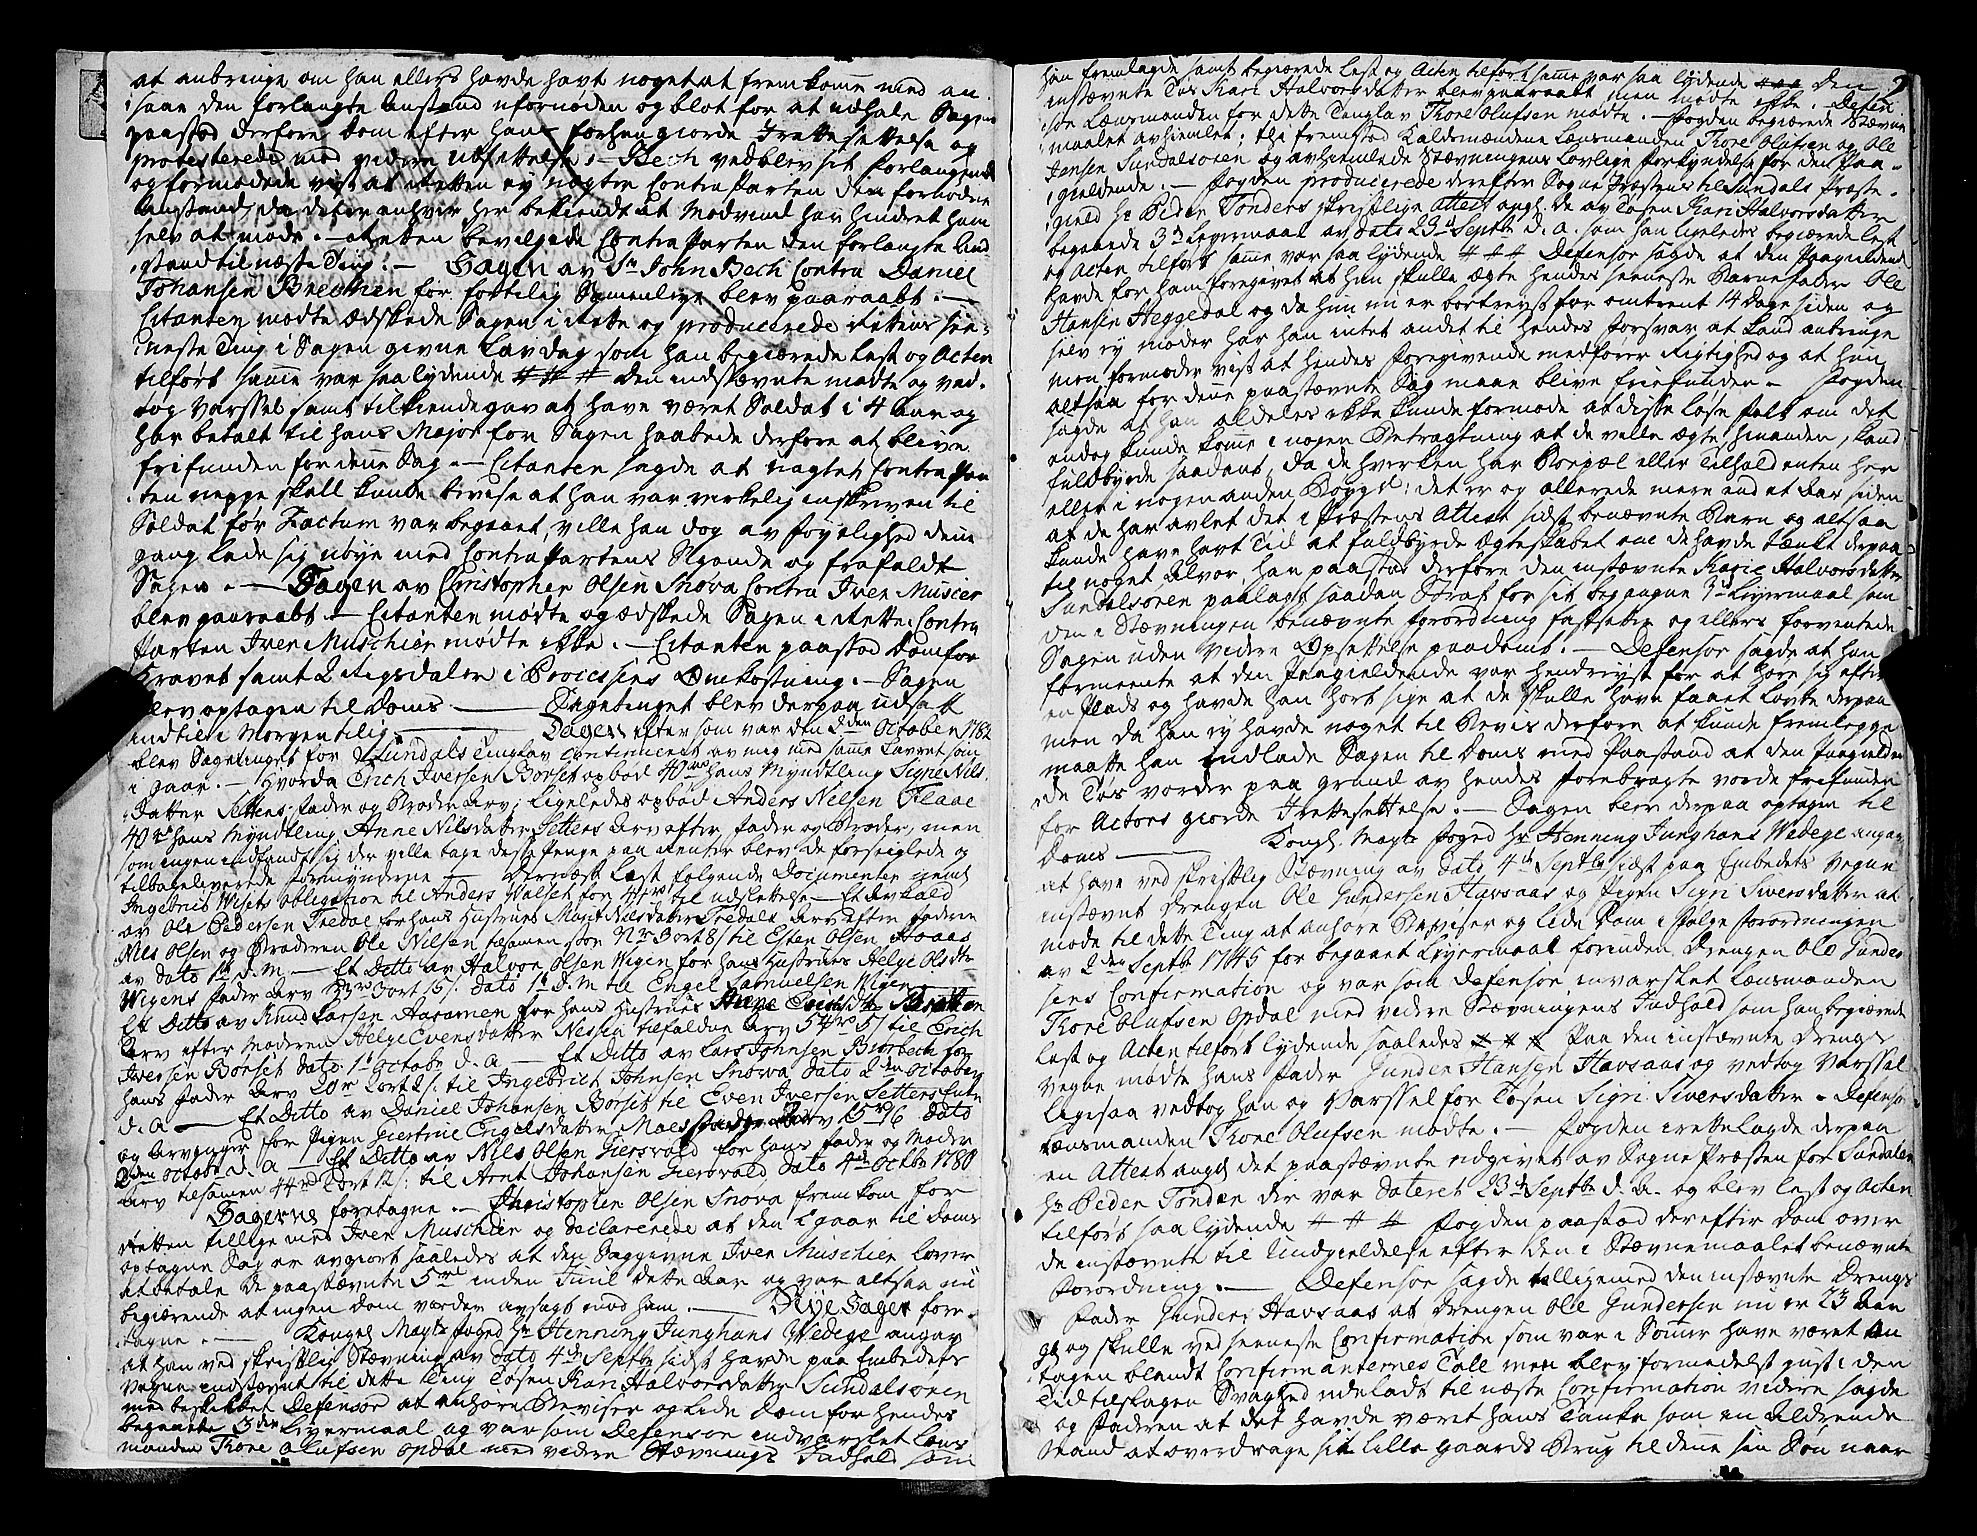 at anbringe om han ellers havde havt noget at fremkome med an
saae den forlangte Anstand ufornøden og blot for at udhale Sagen
paastod derfore Dom efter hans forhengiorde Irettesettelse og
protesterede mod videre Udsettelse. Bech vedblev sit Forlangende
og formodede vist at Retten ey nægter Contra Parten den fornødne
Anstand, da det for enhver her bekiendt at Modvind har hindret ham
selv at møde. Retten bevilgede Contra Parten den forlangte An
stand til næste Ting. Sagen av Sr John Bech Contra Daniel
Johansen Brechen for fortilig Samenleye blev paaraabt.
Citanten mødte ædskede Sagen i Rette og producerede Rettens se
neste Ting i Sagen givne Lavdag som han begiærede læst og Acten
tilført samme var saalydende # # # Den indstævnte mødte og ved
tog Varssel samt tilkiendegav at have været Soldat i 4 Aar og
har betalt til hans Major for Sagen haabede derfore at blive
frifunden for denne Sag. Citanten sagde at uagtet Contra Par
ten neppe skall kunde bevise at han var virkelig inskriven til
Soldat før Factum var begaaet, ville han dog av Føyelighed denne
gang lade sig nøye med Contra Partens Sigende og frafaldt
Sagen. Sagen av Christopher Olsen Snova Contra Iver Muscier
blev paaraabt. Citanten mødte og ædskede Sagen i Rette. Contra
Parten Iver Muschier mødte ikke. Citanten paastod Dom for
Kravet samt 2 Rigsdaler i Processens Omkostning. Sagen
blev optagen til Doms. Sagetinget blev derpaa udsatt
indtil i Morgen tilig. Dagen efter som var den 2den October 1782
blev Sagetinget for Sundals Tinglav Continueret av mig med samme Lavret som
i gaar. Hvorda Erich Iversen Borset opbød 40 rd hans Myndtling Signe Nils
Datter Settens Fader og Broder Arv; Ligeledes opbød Anders Nilsen Flaae
40 rd hans Myndtling Anne Nilsdatter Settens Arv efter Fader og Broder, men
som ingen indfandt sig der ville tage desse Penge paa Renter blev de forseiglede og
tilbageleverede Formynderne. Dernæst læst følgende Documenter nemlig
Ingebrict Wisets Obligation til Anders Walset for til udslettelse. Et Avkald
av Ole Pedersen Tredal for hans Hustrues Marit Nilsdatter Tredals Arv efter Faderen
Nils Olsen og Broderen Ole Nilsen tilsamen stor 72 rd 3 ort 8 s til Esten Olsen Hoaas
av dato 1st d.m. Et Ditto av Halvor Olsen Wigen for hans Hustrues Helge Olsdtr
Wigens Fader Arv 23 rd 3 ort 16 s. dato 1st D.m. til Engel Samuelsen Wigen
Et Ditto av Knud Larsen Aaramen for hans Hustrues
Arv efter Moderen Helge Evensdatter Nessen tilfalden Arv 54 rd 5 til Erich
Iversen Borset dato 1st Octobr d.a. Et Ditto av Lars Johnsen Biorbech for
hans Fader Arv 20 rd 2 ort 2 s. til Ingebrict Johnsen Snova dato 2den October
d.a. Et Ditto av Daniel Johansen Borset til Even Iversen Setters Enke
og Arvinger for Pigen Giertrue Engelsdatter Moes Fader Arv 15 rd 16 dato
2den Octobr d.a. Et Ditto av Nils Olsen Gierswold for hans Fader og Moder
Arv tilsamen 44 rd 2 ort 12 s. til Arnt Johansen Gierswold dato 4de Octbr 1780
Sagerne foretagne. Christopher Olsen Snova fremkom for
Retten tillige med Iver Muschier og declarerede at den i gaar til Doms
optagne Sag er avgiort saaledes at den Saggivne Iver Muschier lover
at betale de paastævnte 5 rd inden Juul dette Aar og var altsaa nu
begiærende at ingen Dom vorder avsagt mod ham. Nye Sager fore
tagne. Kongel Mayts Foged Hr Henning Junghans Wedege angav
at han ved skriftlig Stævning av dato 4de Septbr sidst havde paa Embedets
Vegne indstævnt til dette Ting Tøsen Kari Halvorsdatter Sundalsøren
med beskikket Defensor at anhøre Beviser og lide Dom for hendes
begangne 3die Leyermaal og var som Defensor indvarslet Læns
manden Tore Olufsen Opdøl med videre Stævnings Indhold som
han fremlagde samt begiærede læst og Acten tilført samme var saa lydende # # # Den 2
instævnte Tøs Kari Halvorsdatter blev paaraabt men mødte ikke. Defen
sor Lænsmanden for dette Tinglav Tore Olufsen mødte. Fogden begiærede Stævne
maalet avhiemlet; thi fremstod Kaldsmændene Lænsmanden Tore Olufsen og Ole
Jensen Sundalsøren og avhiemlede Stævningens Lovlige Forkyndelse for den Paa
gieldende. Fogden producerede derefter Sogne Præstens til Sundals Præste
gield Hr Peder Tonders skriftlige Attest angl. de av Tøsen Kari Halvorsdatter
begaaede 3de Leyermaal av dato 23d Septbr d.a. som han ligeledes begiærede læst
og Acten tilført samme var saa lydende # # # Defensor sagde at den Paagieldende
havde for ham foregivet at hun skulle ægte hendes seeneste Barnefader Ole
Hansen Heggedal og da hun nu er bortreyst for omtrent 14 dage siden og
selv ey møder har han intet andet til hendes Forsvar at kand anbringe
men formoder vist at hendes Foregivende medfører Rigtighed og at hun
altsaa for denne paastævnte Sag maae blive friefunden. Fogden
sagde at han aldeles ikke kunde formode at disse løse folk om det
endog kunde komme i nogen Betragtning at de ville ægte hinanden, kand
fuldbyrde saadant, da de hverken har Boepæl eller Tilhold enten her
eller i nogen anden Boygd; det er og allerede mere end et Aar siden
at de har avlet det i Præstens Attest sidst benævnte Barn og altsaa
kunde have havt Tid at fuldbyrde Ægteskabet om de havde tænkt derpaa
til noget Alvor, han paastod derfore den instævnte Karie Halvorsdatter
Sundalsøren paalagt saadan Straf for sit begangne 3d Leyermaal som
den i Stævningen benævnte Forordning fastsetter og ellers forventede
Sagen uden videre Opsettelse paadømt. Defensor sagde at han
formeente at den Paagieldende var henreyst for at høre sig efter
en Plads og havde han hørt sige at de skulle have faaet Løvte derpaa
men da han ey havde noget til Bevis derfore at kunde fremlegge
maatte han indlade Sagen til Doms med Paastand at den Paagielden
de Tøs vorder paa grund av hendes forebragte vorde frifunden
for Actors giorde Irettesettelse. Sagen blev derpaa optagen til
Doms Kongl. Mayts Foged Hr Henning Junghans Wedege angav
at have ved skriftlig Stævning av dato 4de Septbr sidst paa Embedets Vegne
instævnt Drengen Ole Gundersen Havsaas og Pigen Sigri Siversdatter at
møde til dette Ting at anhøre Beviser og lide Dom i Følge Forordningen
av 2den Septbr 1745 for begaaet Leyermaal forinden Drengen Ole Gunder
sens Confirmation og var som Defensor invarslet Lænsmanden
Tore Olufsen Opdøl med videre Stævningens Indhold som han begiærede
læst og Acten tilført lydende saaledes # # # Paa den instævnte Drengs
vegne mødte hans Fader Gunder Hansen Havsaas og vedtog Varssel
ligesaa vedtog han og Varssel for Tøsen Sigri Siversdatter. Defensor
Lænsmanden Tore Olufsen mødte. Fogden irettelagde derpaa
en Attest angl det paastævnte udgivet av Sogne Præsten for Sundalen
Hr Peder Tonder der var dateret 23d Septbr d.a. og blev læst og Acten
tilført saa lydende # # # Fogden paastod derefter Dom over
de instævnte til Undgieldelse efter den i Stævnemaalet benævnte
Forordning. Defensor sagde tilligemed den instævnte Drengs
Fader Gunder Havsaas at Drengen Ole Gundersen nu er 23 Aar
gl og skulle ved seeneste Confirmation som var i Sommer have været an
tagen blandt Confirmanternes Tall men blev formedelst gust i den
Tid tilslagen Svaghed udeladt til næste Confirmation videre sagde
og Faderen at det havde været hans Tanke som en Aldrende
Mand at overdrage sit lille Gaards Brug til denne sin Søn naar